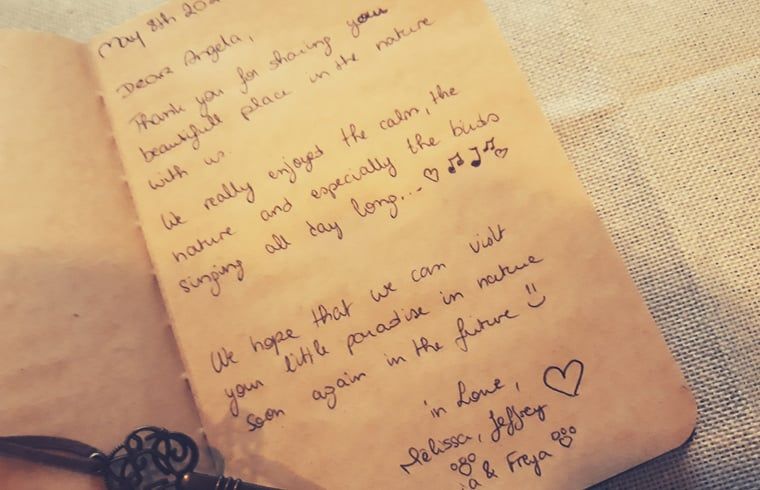 May 8th
Dear Angela,
Thank you for sharing your
beautifull place in the nature
with us.
We really enjoyed the calm, the
nature and especially the birds
singing all day long... ♡ ♫ ♩ ♫ ♡
We hope that we can visit
your little paradise in nature
soon again in the future :)
in Love, ♡
Mélissa, Jeffrey
& Freya